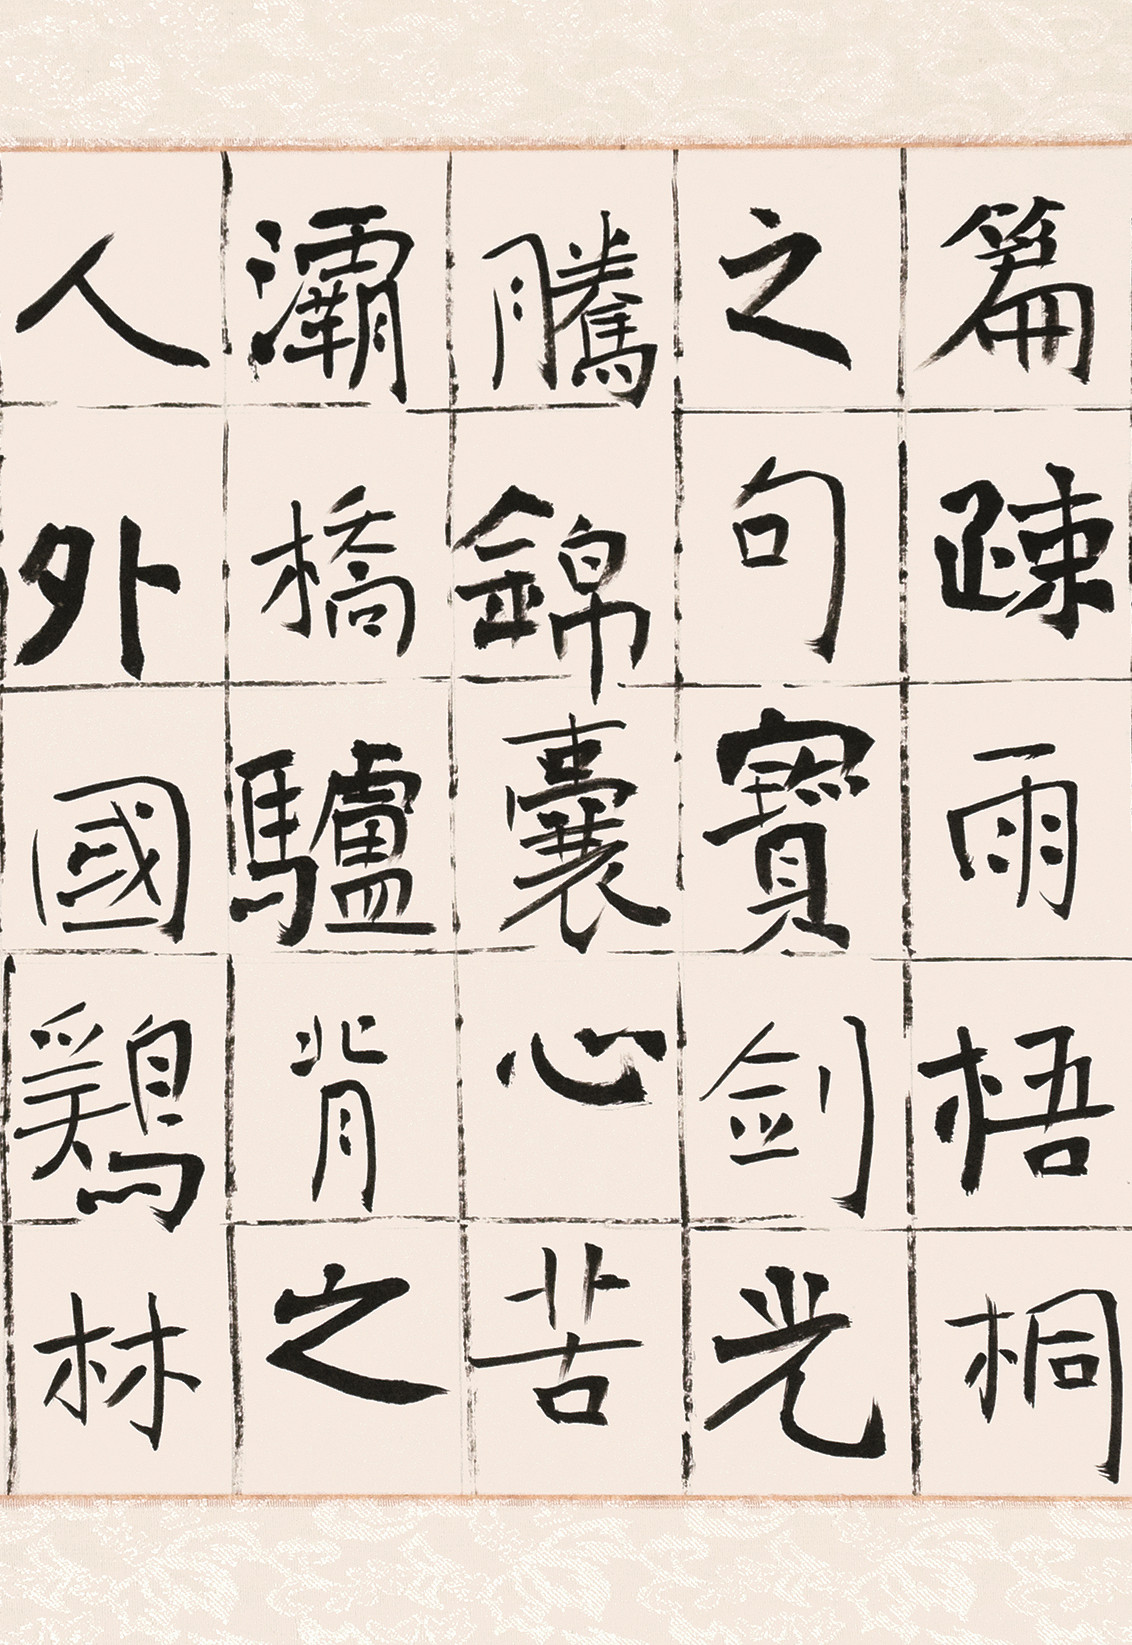 篇疎雨梧桐
之句寶劍光
騰錦囊心苦
灞橋驢背之
人外國鷄林